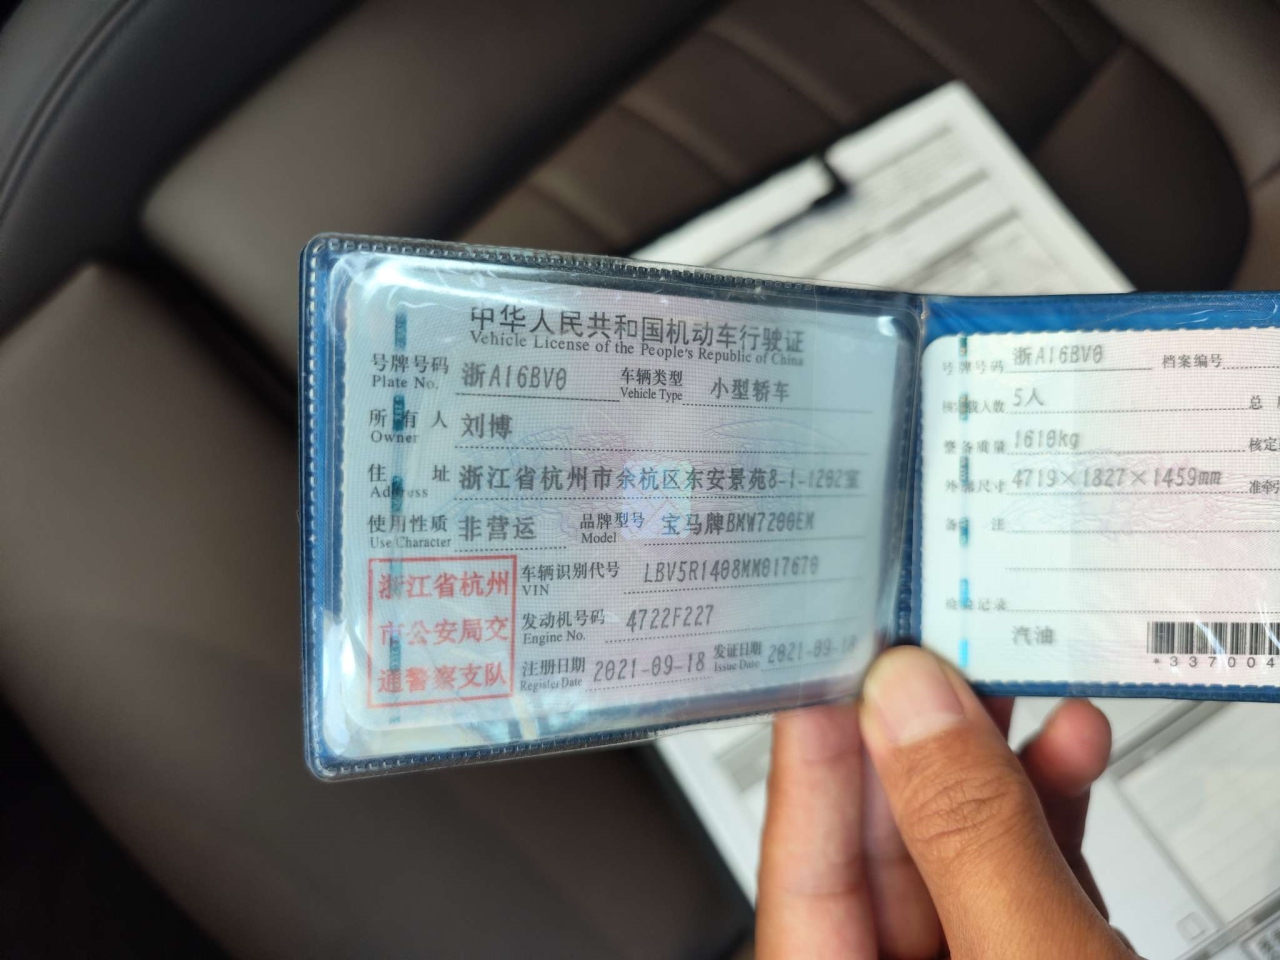 中华人民共和国机动车行驶证
Vehicle License of the People's Republic of China
号牌号码 浙A16BV0 车辆类型 小型轿车
Plate No. Vehicle Type
所有人 刘博
Owner
住址 浙江省杭州市余杭区东安景苑8-1-1202室
Address
使用性质 非营运 品牌型号 宝马牌BMW7200EM
Use Character Model
浙江省杭州
市公安局交
通警察支队
车辆识别代号 LBV5R1408MM017670
VIN
发动机号码 4722F227
Engine No.
注册日期 2021-09-18 发证日期 2021-09-18
Register Date Issue Date
号牌号码 浙A16BV0 档案编号
核定载人数 5人 总
整备质量 1610kg 核定
外廓尺寸 4719×1827×1459mm 准牵
备注
检验记录
汽油
*337004